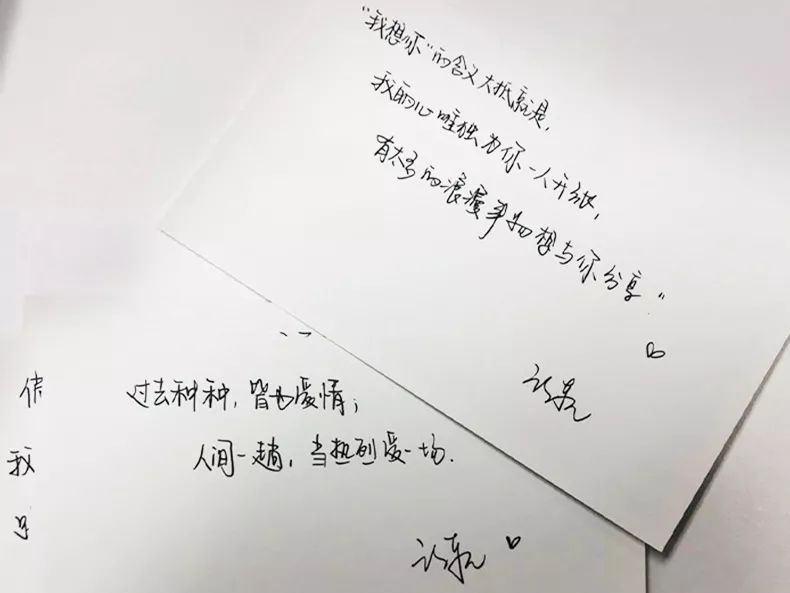 "我想你"的含义大抵就是,
我的心唯独为你一人开放,
有太多的浪漫事物想与你分享."
过去种种,皆为爱情;
人间一趟,当热烈爱一场.
我